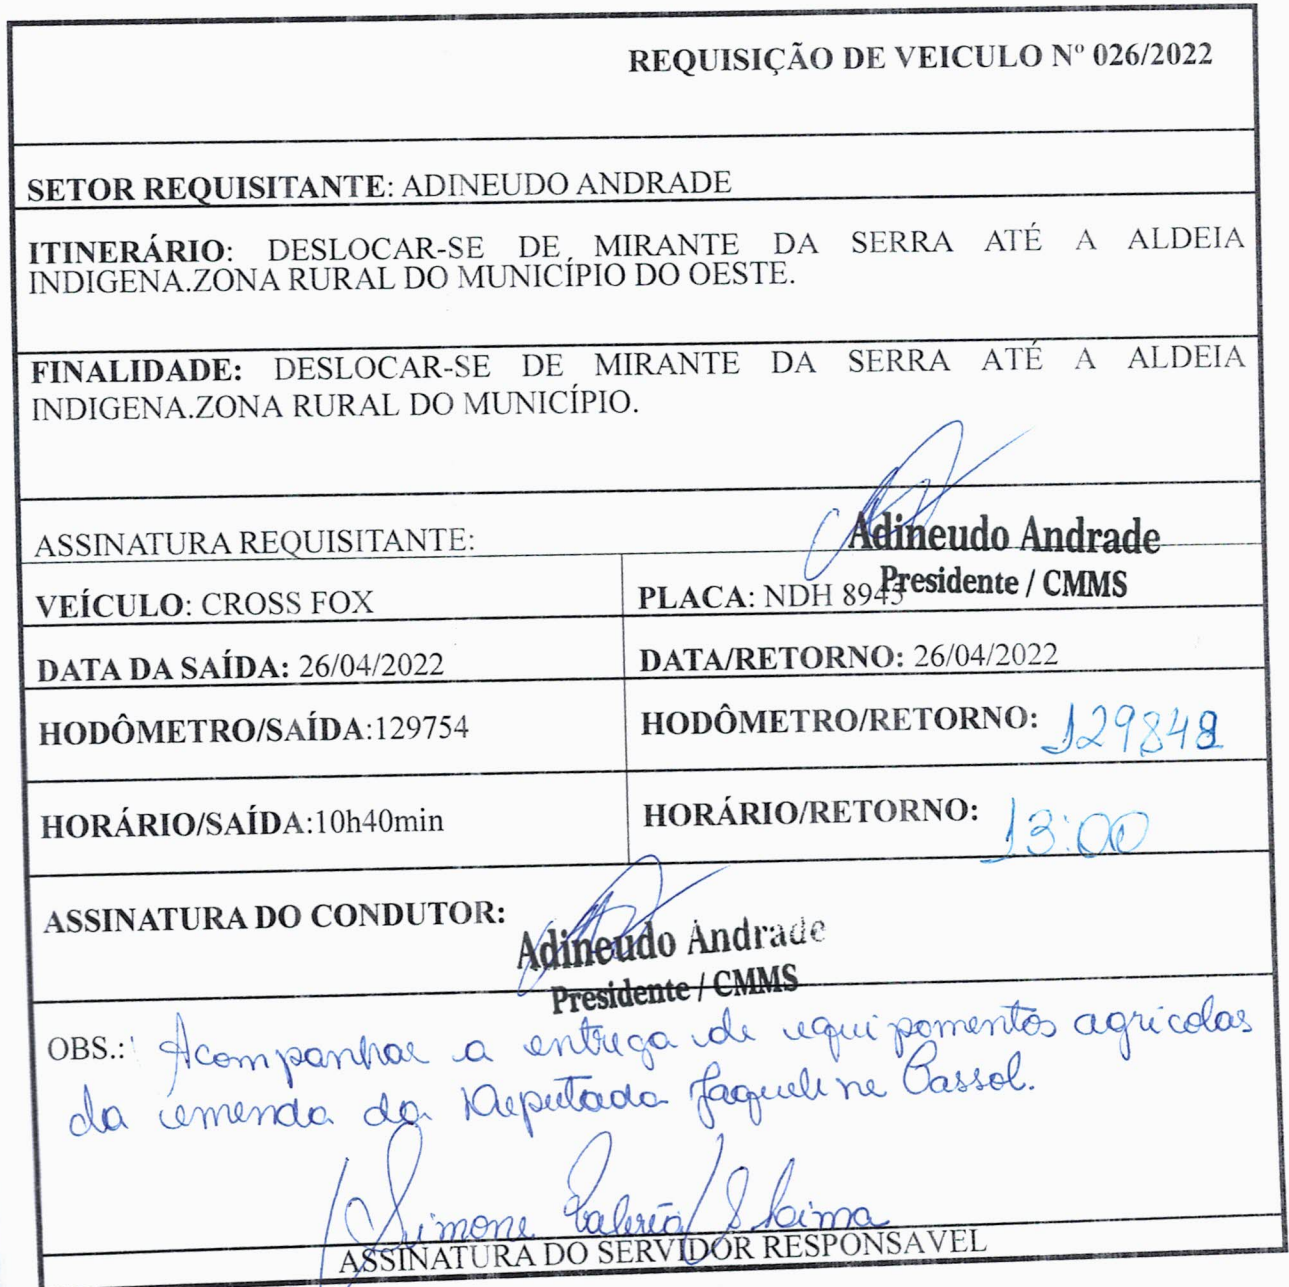 REQUISIÇÃO DE VEICULO Nº 026/2022
SETOR REQUISITANTE: ADINEUDO ANDRADE
ITINERÁRIO: DESLOCAR-SE DE MIRANTE DA SERRA ATÉ A ALDEIA
INDIGENA.ZONA RURAL DO MUNICÍPIO DO OESTE.
FINALIDADE: DESLOCAR-SE DE MIRANTE DA SERRA ATÉ A ALDEIA
INDIGENA.ZONA RURAL DO MUNICÍPIO.
ASSINATURA REQUISITANTE:
Adineudo Andrade
Presidente / CMMS
VEÍCULO: CROSS FOX
PLACA: NDH 8943
DATA DA SAÍDA: 26/04/2022
DATA/RETORNO: 26/04/2022
HODÔMETRO/SAÍDA:129754
HODÔMETRO/RETORNO: 129848
HORÁRIO/SAÍDA:10h40min
HORÁRIO/RETORNO: 13:00
ASSINATURA DO CONDUTOR:
Adineudo Andrade
Presidente / CMMS
OBS.: Acompanhar a entrega de equipamentos agricolas
da emenda da Deputada Jaqueline Cassol.
Simone
ASSINATURA DO SERVIDOR RESPONSAVEL